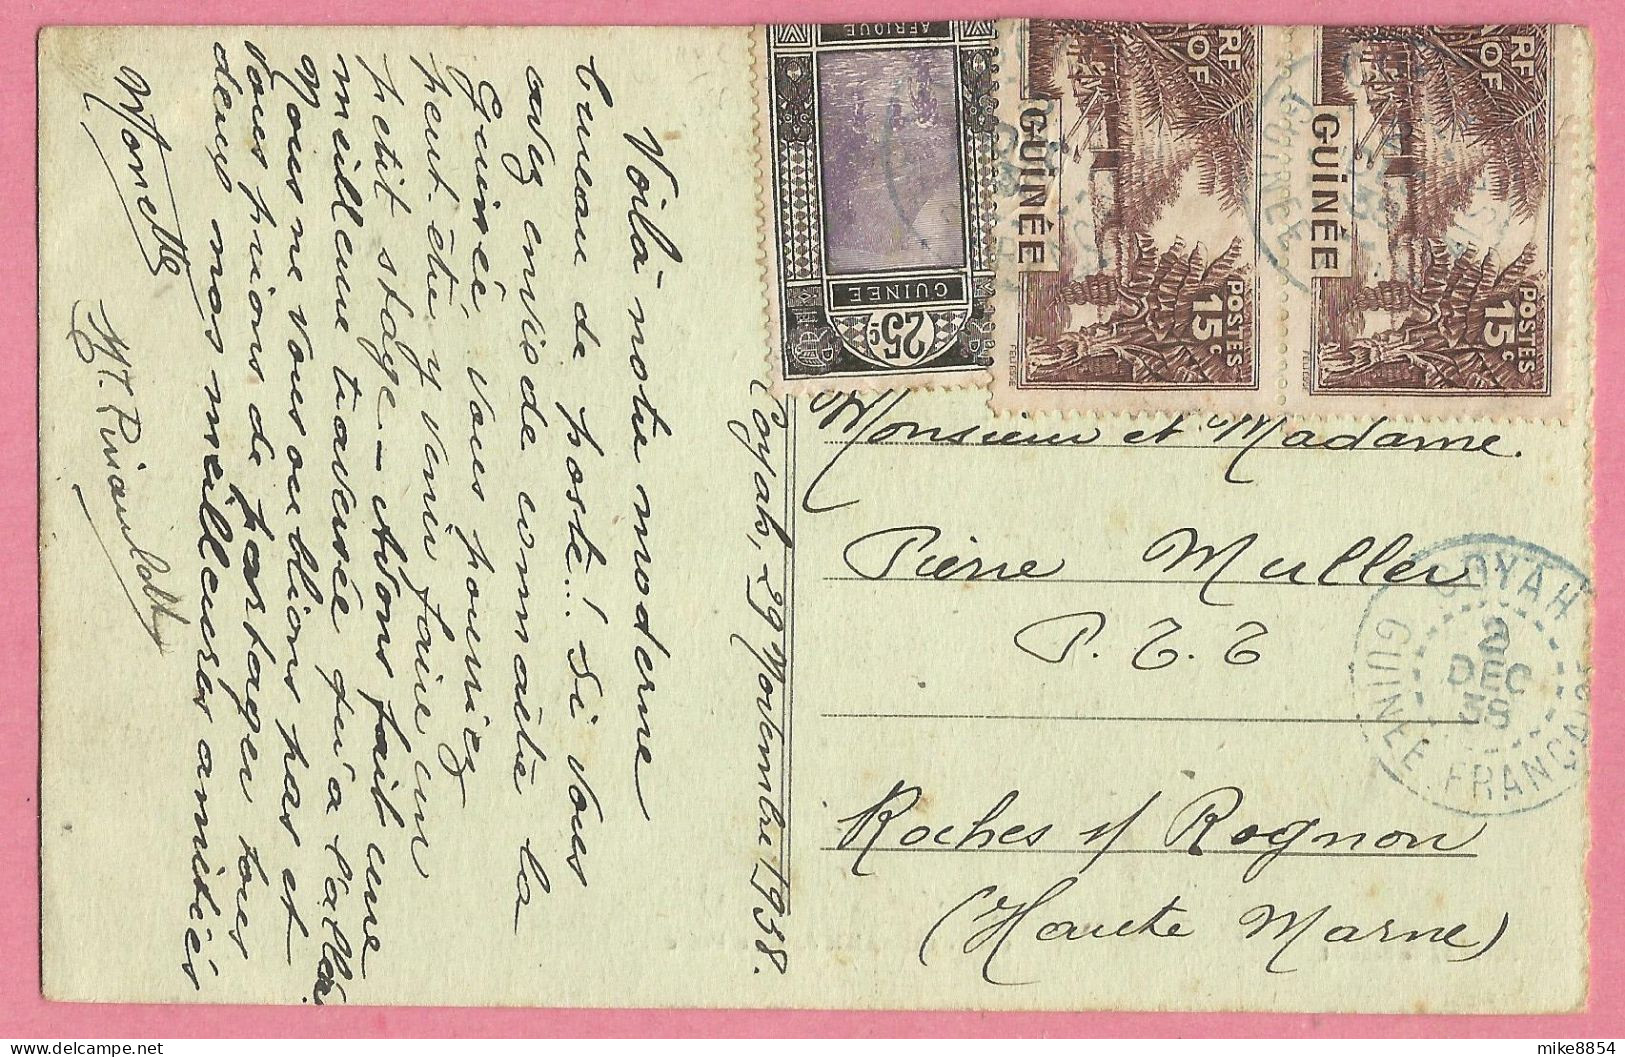 Coyah, 29 Novembre 1938.
Voilà notre moderne
bureau de poste..! Si vous
avez envie de connaître la
Guinée, vous pourriez
peut-être y venir faire un
petit stage — Avons fait une
meilleure traversée qu'à l'aller
Nous ne vous oublions pas et
vous prions de partager tous
deux nos meilleures amitiés
Monette
AFRIQUE
GUINEE
25c
RF
NOF
GUINÉE
POSTES
15c
RF
NOF
GUINÉE
POSTES
15c
Monsieur et Madame.
Pierre Muller
P. T. T
Roches s/ Rognon
(Haute Marne)
COYAH
2
DEC
38
GUINEE FRANÇAISE
mike8854